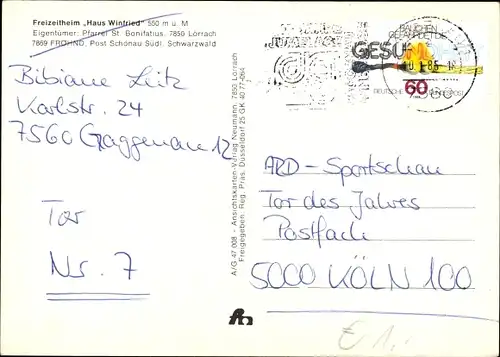 Freizeitheim „Haus Winfried" 550 m ü. M
Eigentümer: Pfarrei St. Bonifatius, 7850 Lörrach
7869 FRÖHND, Post Schönau Südl. Schwarzwald
Bibiane Leitz
Karlstr. 24
7560 Gaggenau 12
Tor
Nr. 7
A/G 47 008 - Ansichtskarten-Verlag Neumann, 7850 Lörrach
Freigegeben: Reg. Präs. Düsseldorf 25 GK 40 77-064
RAUCHEN
GEFÄHRDET DIE
GESUNDHEIT
60
DEUTSCHE BUNDESPOST
ARD-Sportschau
Tor des Jahres
Postfach
5000 KÖLN 100
€ 1,-